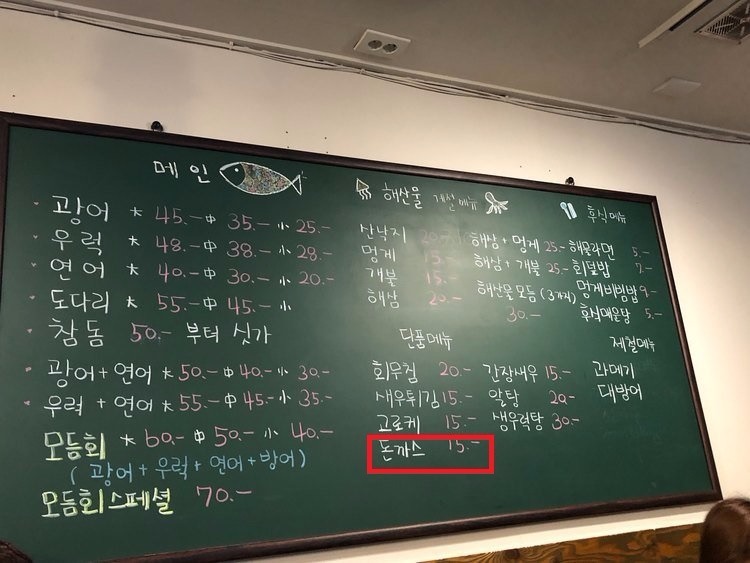 메인
광어 大 45.- 中 35.- 小 25.-
우럭 大 48.- 中 38.- 小 28.-
연어 大 40.- 中 30.- 小 20.-
도다리 大 55.- 中 45.- 小
참돔 50.- 부터 싯가
광어+연어 大 50.- 中 40.- 小 30.-
우럭+연어 大 55.- 中 45.- 小 35.-
모듬회 大 60.- 中 50.- 小 40.-
(광어+우럭+연어+방어)
모듬회스페셜 70.-
해산물 계절메뉴
산낙지 20.-
멍게 15.-
개불 15.-
해삼 20.-
해삼+멍게 25.-
해삼+개불 25.-
해산물모듬(3가지)
30.-
후식메뉴
해물라면 5.-
회덮밥 7.-
멍게비빔밥 9.-
후식매운탕 5.-
단품메뉴
회무침 20.-
새우튀김 15.-
고로케 15.-
돈까스 15.-
간장새우 15.-
알탕 20.-
생우럭탕 30.-
제철메뉴
과메기
대방어